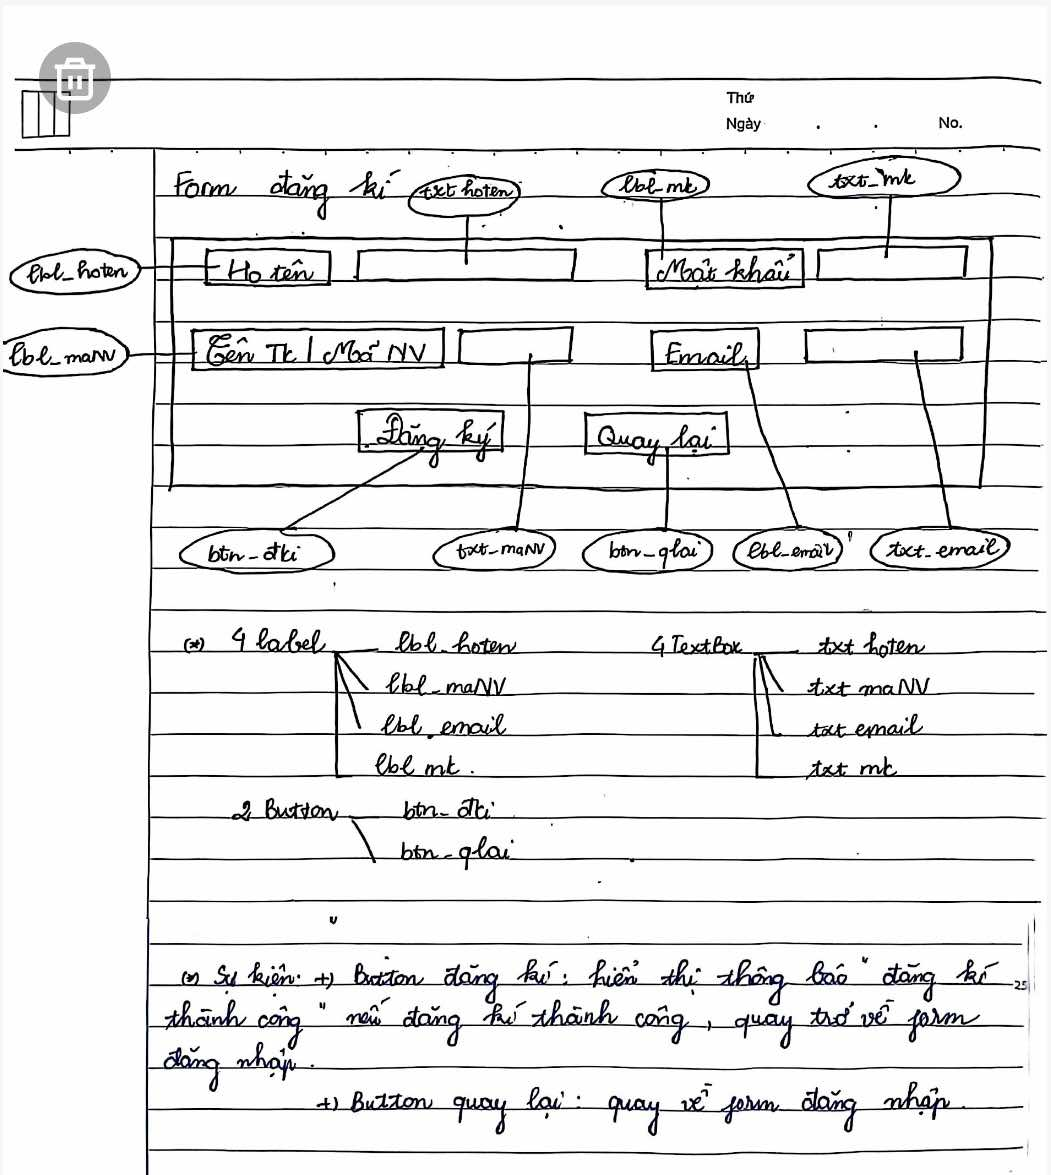 Thứ
Ngày . . No.
Form đăng kí
txt hoten
lbl_mk
txt_mk
lbl_hoten
Họ tên
Mật khẩu
lbl_maNV
Tên Tk / Mã NV
Email
Đăng ký
Quay lại
btn_đki
txt_maNV
btn_qlai
lbl_email
txt_email
(*) 4 label lbl_hoten 4 TextBox txt hoten
lbl_maNV txt maNV
lbl_email txt email
lbl mk. txt mk
2 Button btn_đki
btn_qlai
(*) Sự kiện: +) Button đăng kí: hiển thị thông báo "đăng kí
25
thành công" nếu đăng kí thành công, quay trở về form
đăng nhập.
+) Button quay lại: quay về form đăng nhập.